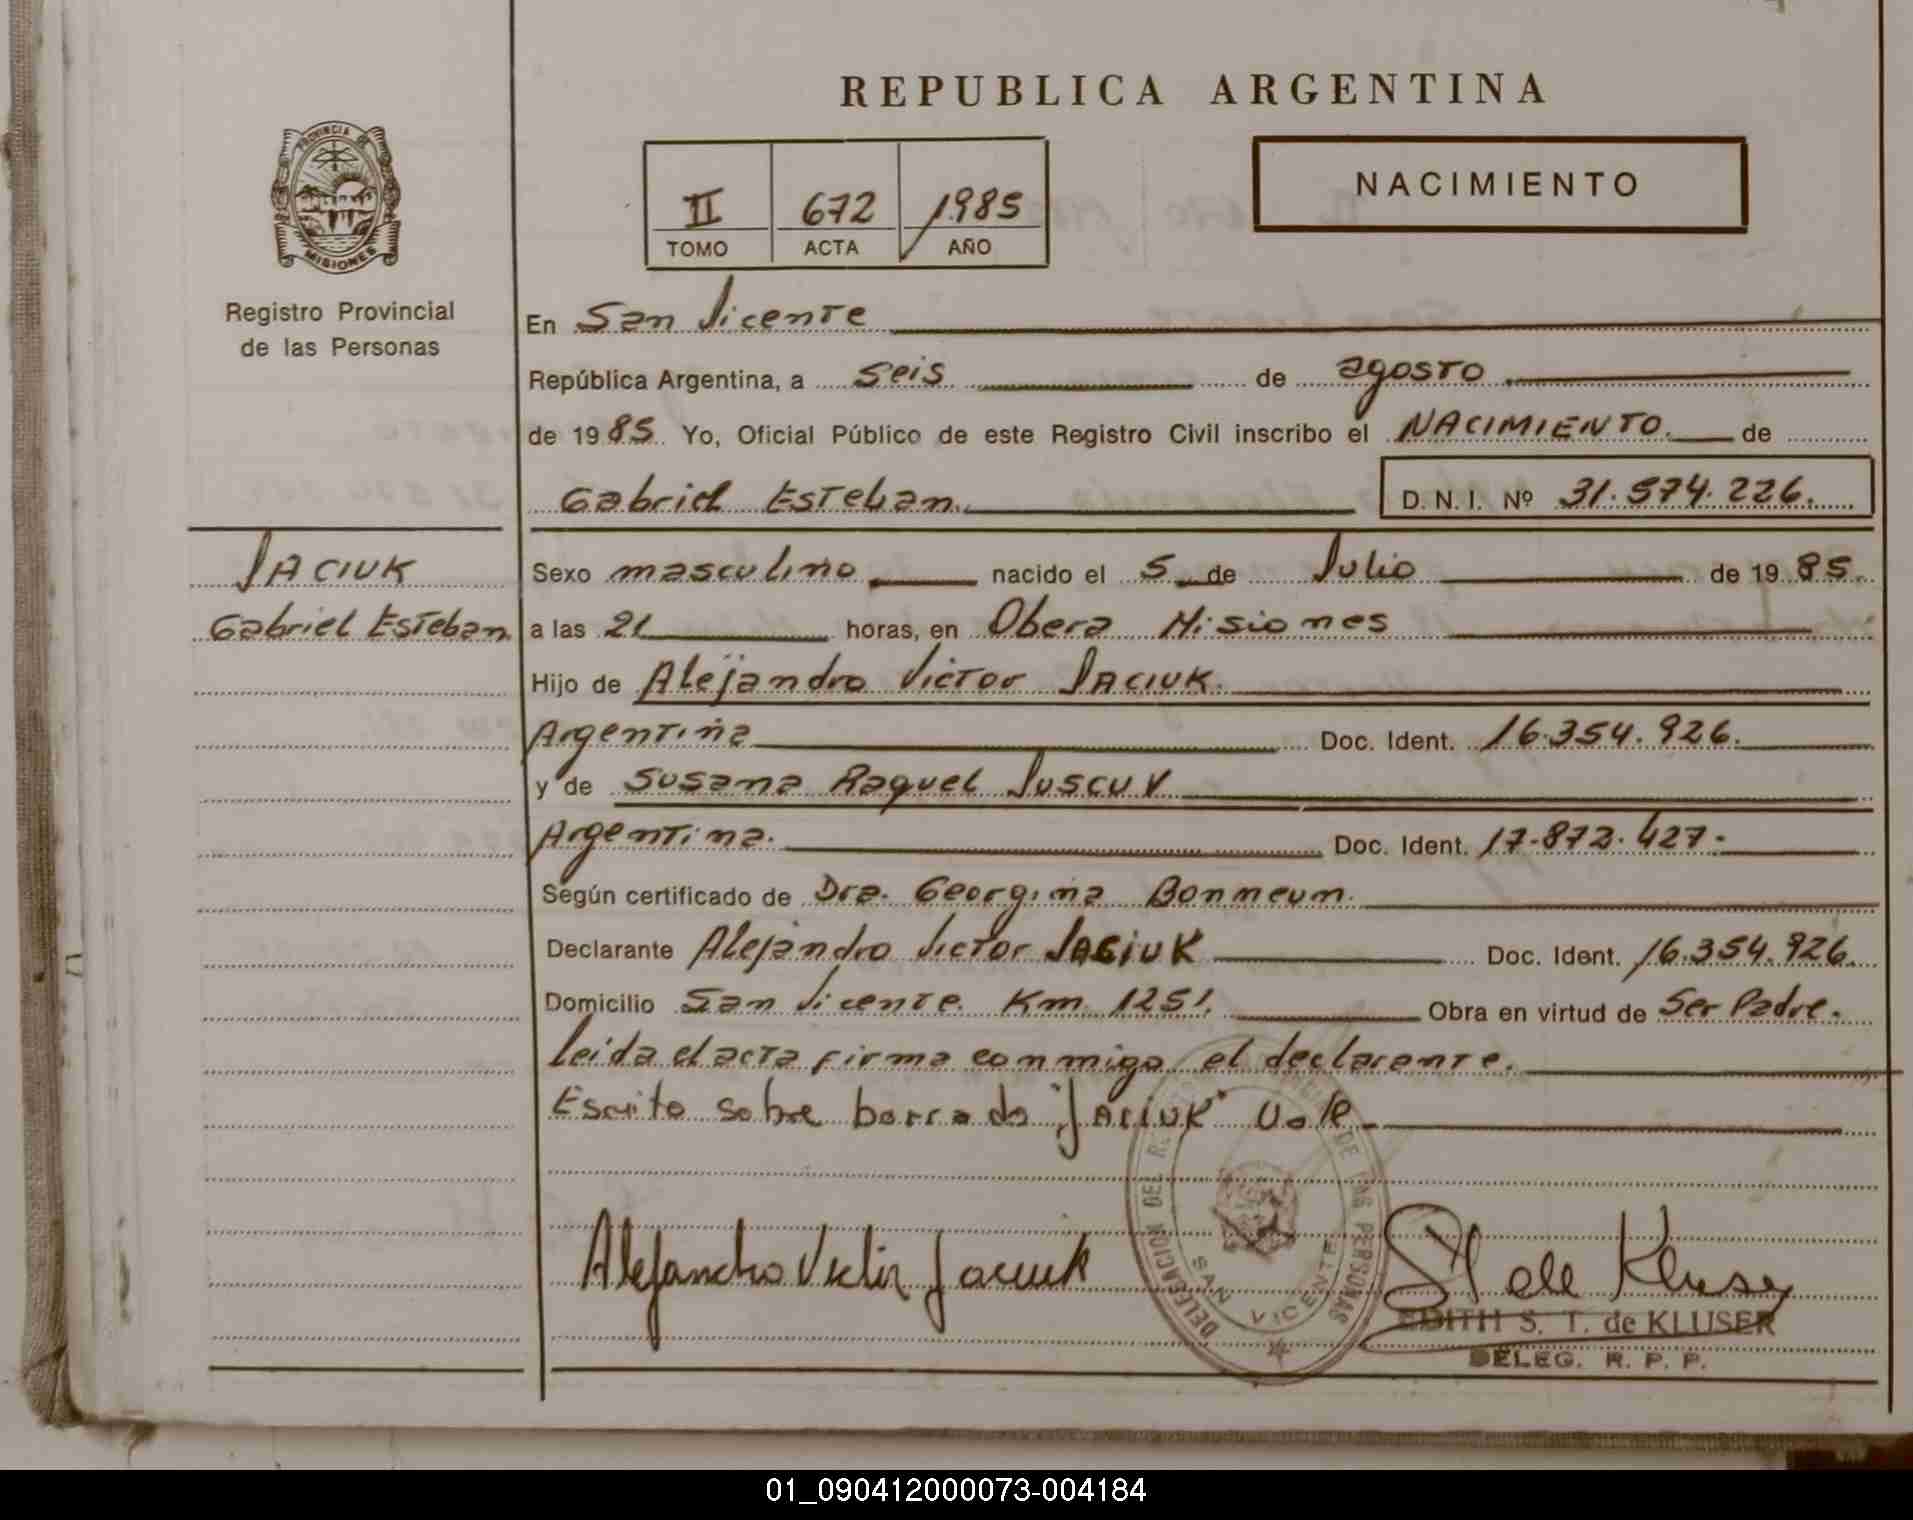 REPUBLICA ARGENTINA
PROVINCIA DE
MISIONES
Registro Provincial
de las Personas
II 672 1985
TOMO ACTA AÑO
NACIMIENTO
En San Vicente
República Argentina, a seis de agosto
de 1985. Yo, Oficial Público de este Registro Civil inscribo el NACIMIENTO. de
Gabriel Esteban. D. N. I. Nº 31.574.226.
JACIUK
Gabriel Esteban
Sexo masculino nacido el 5 de Julio de 1985.
a las 21 horas, en Obera Misiones
Hijo de Alejandro Victor JACIUK.
Argentina Doc. Ident. 16.354.926.
y de Susana Raquel
Argentina. Doc. Ident. 17.872.427.
Según certificado de Dra. Georgina
Declarante Alejandro Victor JACIUK Doc. Ident. 16.354.926.
Domicilio San Vicente. Km 1251. Obra en virtud de Ser Padre.
leida el acta firma conmigo el declarante.
Escrito sobre borrado "JACIUK" vale
Alejandro Victor Jaciuk
DELEGACION DEL DE LAS PERSONAS
SAN VICENTE
de Kluser
EDITH S. T. de KLUSER
DELEG. R. P. P.
01_090412000073-004184